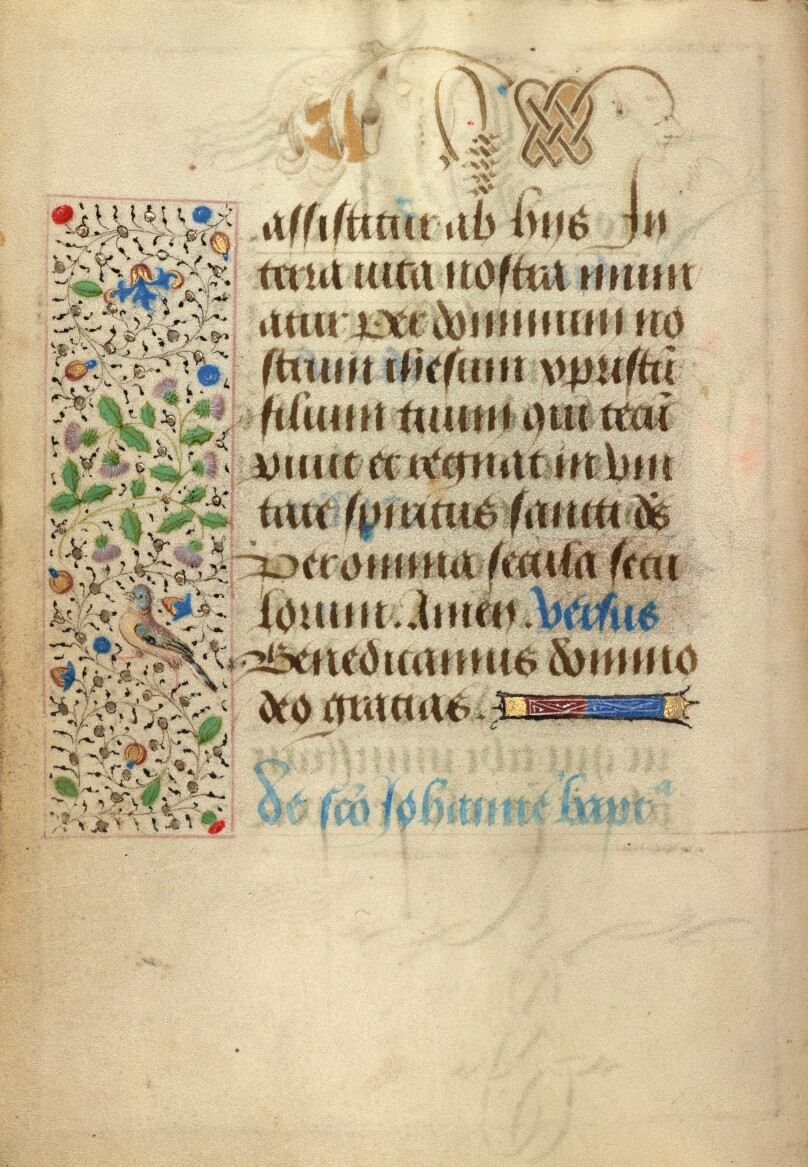 assistitur ab hijs In
terra uita nostra muni
atur Per dominum no
strum ihesum xpristū
filium tuum qui tecū
viuit et regnat in vni
tate spiritus sancti ds̄
Per omnia secula secu
lorum. Amen. Versus
Benedicamus domino
deo gracias.
De scō Johanne bapt